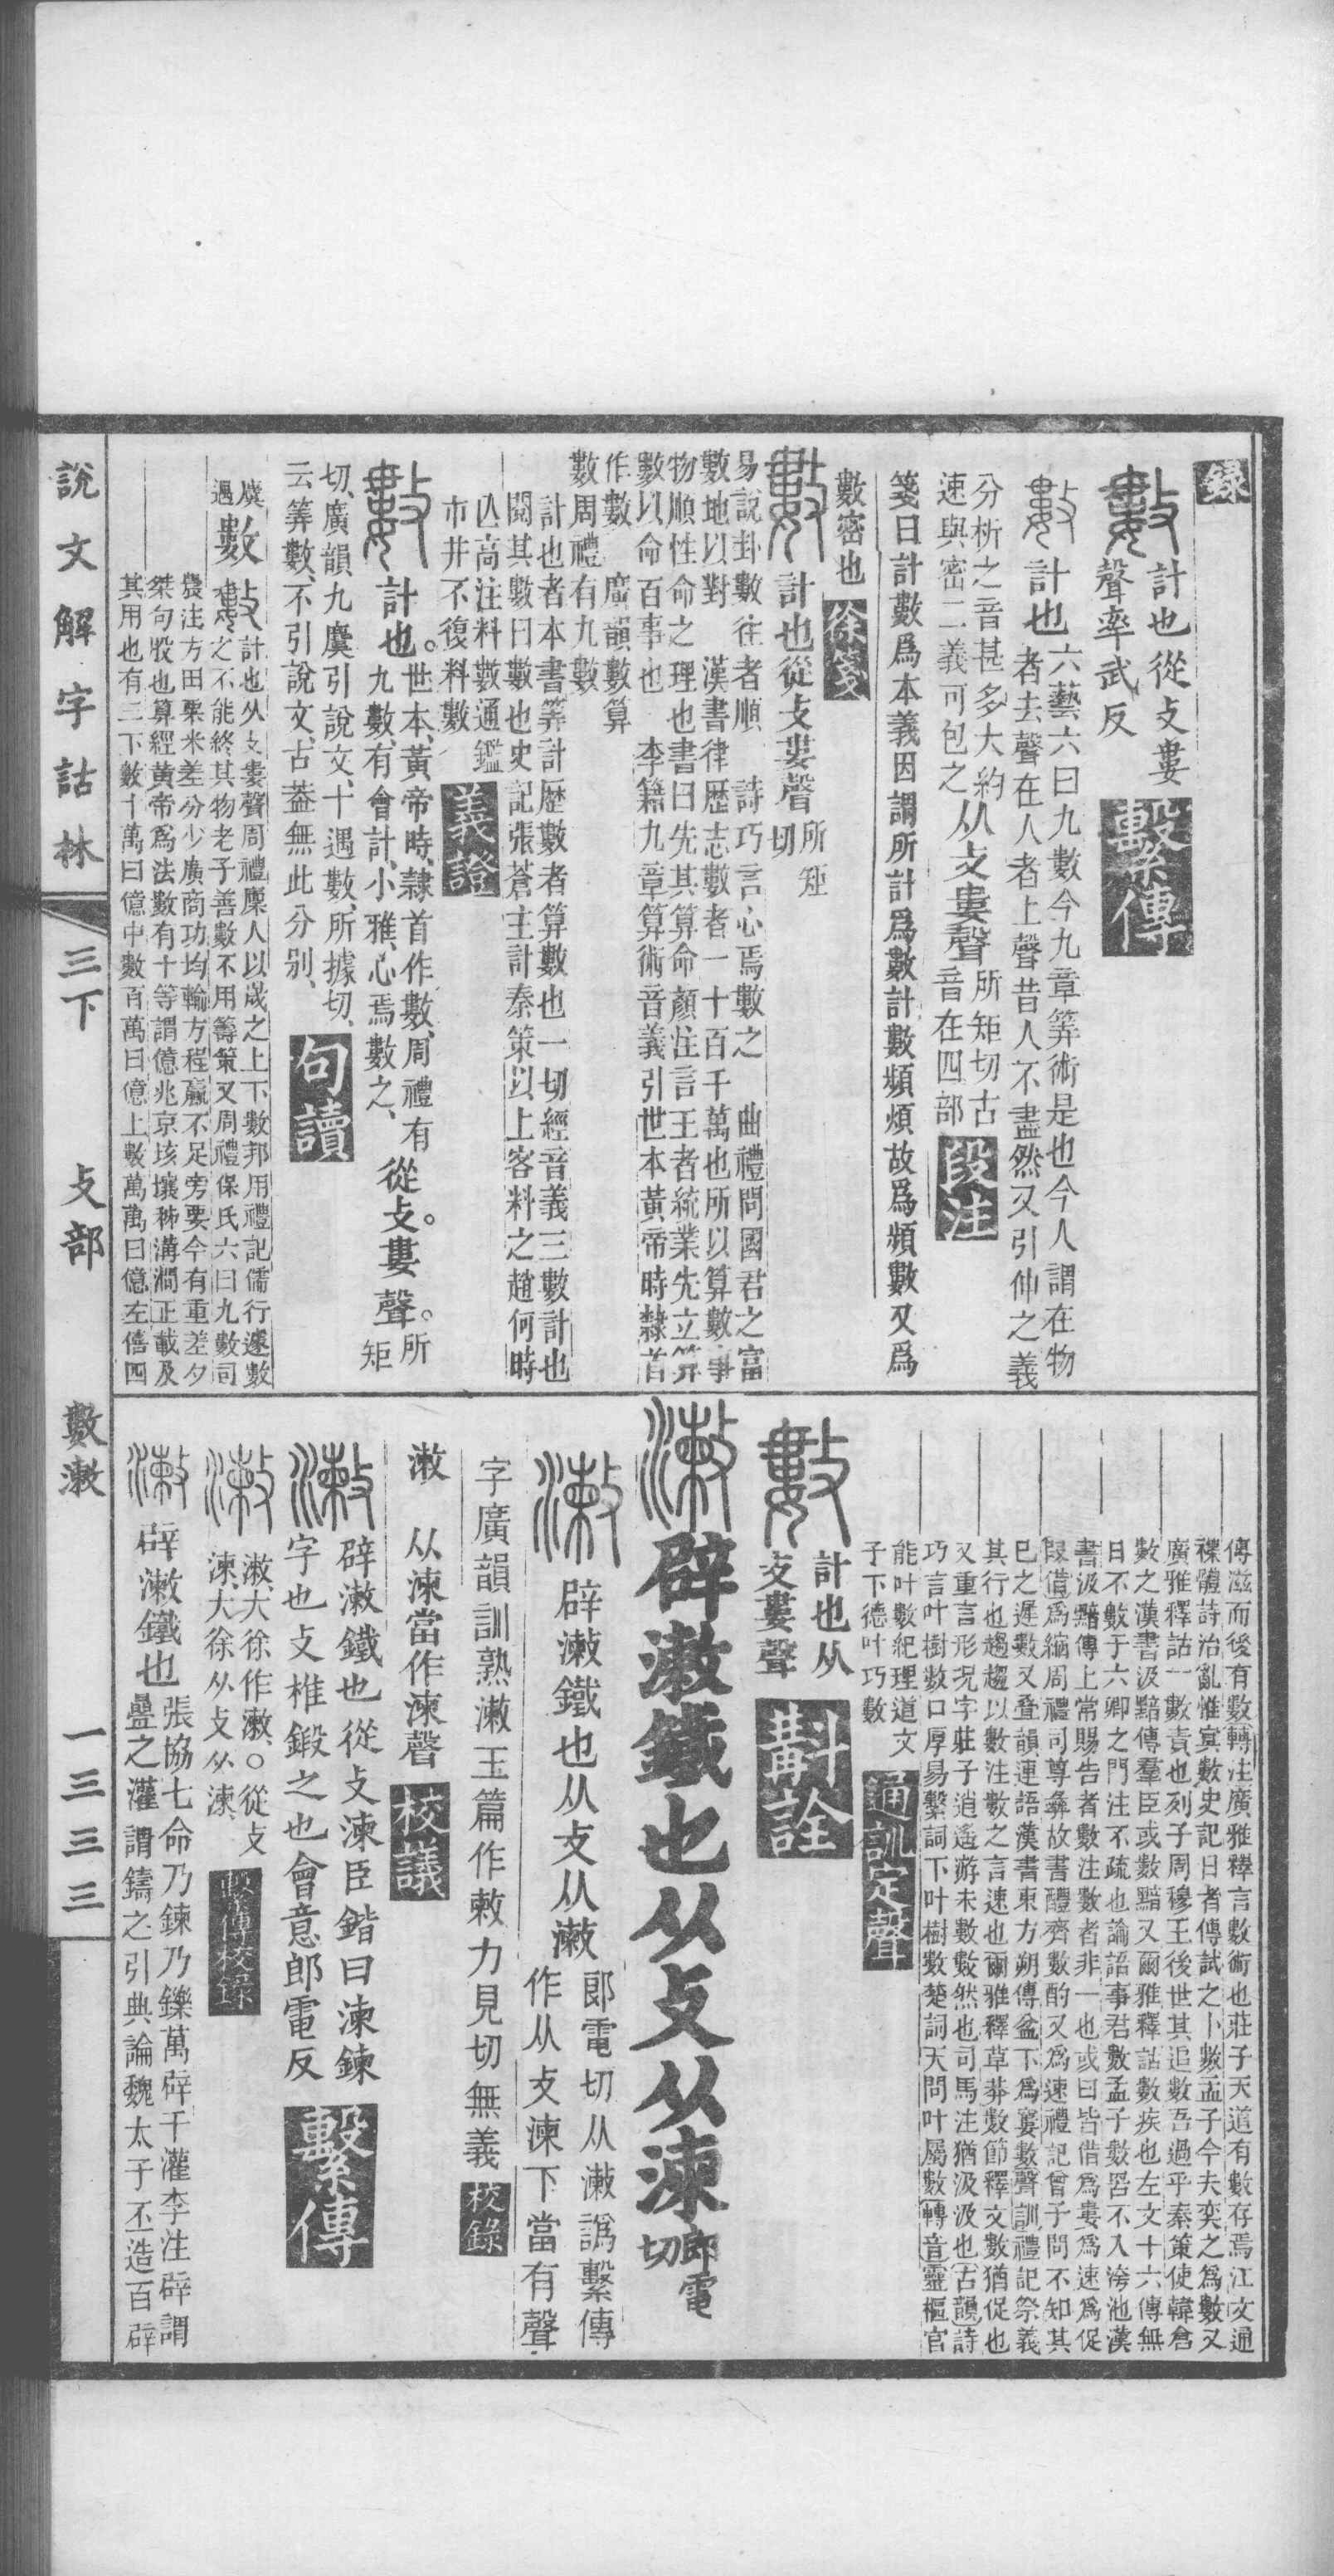 錄
數 計也從攴婁
聲率武反 繫傳
數 計也六藝六曰九數今九章筭術是也今人謂在物
者去聲在人者上聲昔人不盡然又引伸之義
分析之音甚多大約
速與密二義可包之从攴婁聲所矩切古
音在四部 段注
箋曰計數爲本義因謂所計爲數計數頻煩故爲頻數又爲
數密也 徐箋
數 計也從攴婁聲所矩
切
易說卦數往者順 詩巧言心焉數之 曲禮問國君之富
數地以對 漢書律歷志數者一十百千萬也所以算數事
物順性命之理也書曰先其算命顏注言王者統業先立算
數以命百事也 李籍九章算術音義引世本黃帝時隸首
作數 廣韻數算
數周禮有九數
計也者本書筭計歷數者算數也一切經音義三數計也
閱其數曰數也史記張蒼主計秦策以上客料之趙何時
亾高注料數通鑑
市井不復料數 義證
數 計也。世本、黃帝時、隸首作數、周禮有
九數、有會計、小雅、心焉數之、從攴。婁聲。所
矩
切、廣韻、九麌引說文、十遇數、所據切、
云筭數、不引說文、古葢無此分別、 句讀
麌
遇 數 計也从攴婁聲周禮廩人以歲之上下數邦用禮記儒行遽數
之不能終其物老子善數不用籌策又周禮保氏六曰九數司
農注方田粟米差分少廣商功均輸方程贏不足旁要今有重差夕
桀句股也算經黃帝爲法數有十等謂億兆京垓壤秭溝澗正載及
其用也有三下數十萬曰億中數百萬曰億上數萬萬曰億左僖四
傳滋而後有數轉注廣雅釋言數術也莊子天道有數存焉江文通
襍體詩治亂惟冥數史記日者傳試之卜數孟子今夫奕之爲數又
廣雅釋詁一數責也列子周穆王後世其追數吾過乎秦策使韓倉
數之漢書汲黯傳羣臣或數黯又爾雅釋詁數疾也左文十六傳無
日不數于六卿之門注不疏也論語事君數孟子數罟不入洿池漢
書汲黯傳上常賜告者數注數者非一也或曰皆借爲婁爲速爲促
叚借爲縮周禮司尊彝故書醴齊數酌又爲速禮記曾子問不知其
已之遲數又疊韻連語漢書東方朔傳盆下爲寠數聲訓禮記祭義
其行也趨趨以數注數之言速也爾雅釋草莽數節釋文數猶促也
又重言形況字莊子逍遙游未數數然也司馬注猶汲汲也古韻詩
巧言叶樹數口厚易繫詞下叶樹數楚詞天問叶屬數轉音靈樞官
能叶數紀理道文
子下德叶巧數 通訓定聲
數 計也从
攴婁聲 斠詮
漱 辟漱鐵也从攴从湅郎電
切
漱 辟漱鐵也从攴从漱郎電切从漱譌繫傳
作从攴湅下當有聲
字廣韻訓熟漱玉篇作敕力見切無義 校錄
漱 从湅當作湅聲 校議
漱 辟漱鐵也從攴湅臣鍇曰湅鍊
字也攴椎鍛之也會意郎電反 繫傳
漱 漱、大徐作漱、○從攴
湅、大徐从攴从湅、 繫傳校錄
漱 辟漱鐵也張協七命乃鍊乃鑠萬辟千灌李注辟謂
疊之灌謂鑄之引典論魏太子丕造百辟
說文解字詁林
三下
攴部
數漱
一三三三